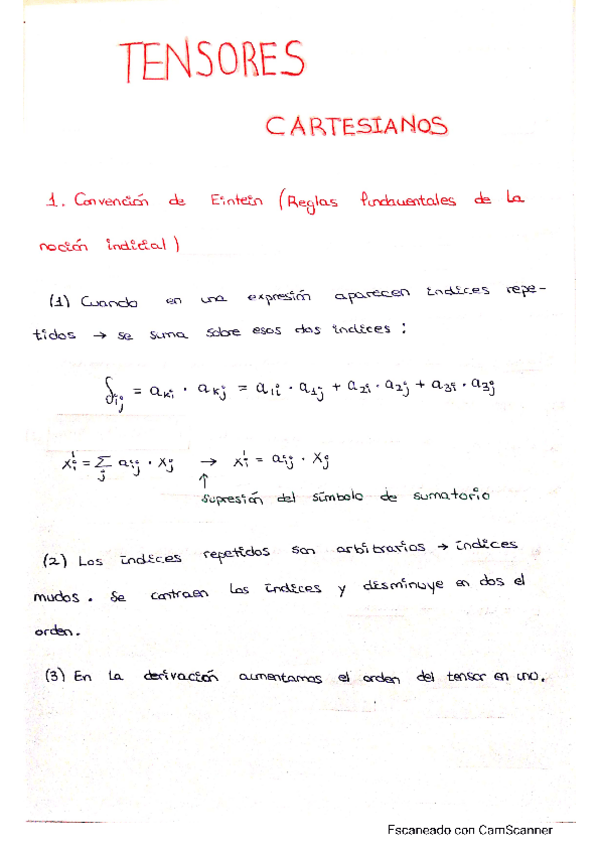 TENSORES
CARTESIANOS
1. Convención de Eintein (Reglas fundamentales de la
noción indicial)
(1) Cuando en una expresión aparecen índices repe-
tidos → se suma sobre esos dos índices:
δij = aki · akj = a1i · a1j + a2i · a2j + a3i · a3j
x'i = Σj aij · xj → x'i = aij · xj
↑
supresión del símbolo de sumatorio
(2) Los índices repetidos son arbitrarios → índices
mudos. Se contraen los índices y disminuye en dos el
orden.
(3) En la derivación aumentamos el orden del tensor en uno.
Escaneado con CamScanner